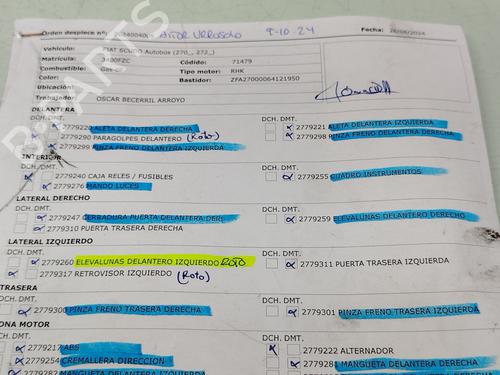 Orden despiece nº: 20240040 AITOR URROSOLO 9-10.24 Fecha: 26/08/2024
Vehículo: FIAT SCUDO Autobox (270_, 272_)
Matrícula: 3400FZC Código: 71479
Combustible: Gas-oil Tipo motor: RHK
Color: Bastidor: ZFA27000064121950
Ubicación:
Trabajador: OSCAR BECERRIL ARROYO
DELANTERA
DCH. DMT. DCH. DMT.
2779220 ALETA DELANTERA DERECHA 2779221 ALETA DELANTERA IZQUIERDA
2779290 PARAGOLPES DELANTERO (Roto) 2779298 PINZA FRENO DELANTERA DERECHA
2779299 PINZA FRENO DELANTERA IZQUIERDA
INTERIOR
DCH. DMT. DCH. DMT.
2779240 CAJA RELES / FUSIBLES 2779255 CUADRO INSTRUMENTOS
2779276 MANDO LUCES
LATERAL DERECHO
DCH. DMT. DCH. DMT.
2779247 CERRADURA PUERTA DELANTERA DERECHA 2779259 ELEVALUNAS DELANTERO DERECHO
2779310 PUERTA TRASERA DERECHA
LATERAL IZQUIERDO
DCH. DMT. DCH. DMT.
2779260 ELEVALUNAS DELANTERO IZQUIERDO ROTO 2779311 PUERTA TRASERA IZQUIERDA
2779317 RETROVISOR IZQUIERDO (Roto)
TRASERA
DCH. DMT. DCH. DMT.
2779300 PINZA FRENO TRASERA DERECHA 2779301 PINZA FRENO TRASERA IZQUIERDA
ZONA MOTOR
DCH. DMT. DCH. DMT.
2779217 ABS 2779222 ALTERNADOR
2779254 CREMALLERA DIRECCION 2779281 MANGUETA DELANTERA DERECHA
2779282 MANGUETA DELANTERA IZQUIERDA